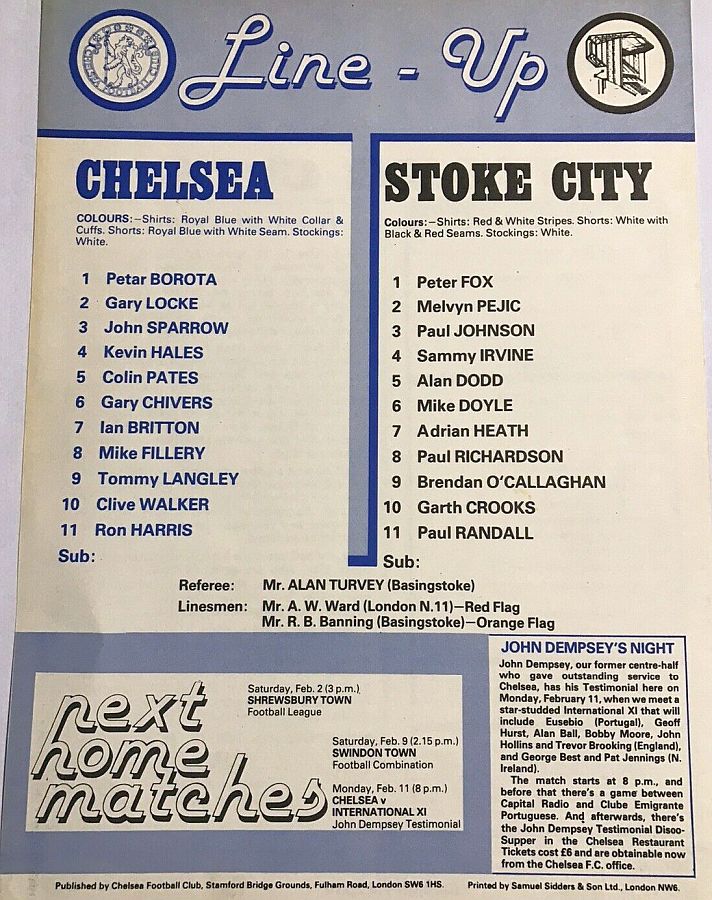 CHELSEA FOOTBALL CLUB
Line-Up
CHELSEA
COLOURS:—Shirts: Royal Blue with White Collar &
Cuffs. Shorts: Royal Blue with White Seam. Stockings:
White.
1 Petar BOROTA
2 Gary LOCKE
3 John SPARROW
4 Kevin HALES
5 Colin PATES
6 Gary CHIVERS
7 Ian BRITTON
8 Mike FILLERY
9 Tommy LANGLEY
10 Clive WALKER
11 Ron HARRIS
Sub:
STOKE CITY
Colours:—Shirts: Red & White Stripes. Shorts: White with
Black & Red Seams. Stockings: White.
1 Peter FOX
2 Melvyn PEJIC
3 Paul JOHNSON
4 Sammy IRVINE
5 Alan DODD
6 Mike DOYLE
7 Adrian HEATH
8 Paul RICHARDSON
9 Brendan O'CALLAGHAN
10 Garth CROOKS
11 Paul RANDALL
Sub:
Referee: Mr. ALAN TURVEY (Basingstoke)
Linesmen: Mr. A. W. Ward (London N.11)—Red Flag
Mr. R. B. Banning (Basingstoke)—Orange Flag
next
home
matches
Saturday, Feb. 2 (3 p.m.)
SHREWSBURY TOWN
Football League
Saturday, Feb. 9 (2.15 p.m.)
SWINDON TOWN
Football Combination
Monday, Feb. 11 (8 p.m.)
CHELSEA v
INTERNATIONAL XI
John Dempsey Testimonial
JOHN DEMPSEY'S NIGHT
John Dempsey, our former centre-half
who gave outstanding service to
Chelsea, has his Testimonial here on
Monday, February 11, when we meet a
star-studded International XI that will
include Eusebio (Portugal), Geoff
Hurst, Alan Ball, Bobby Moore, John
Hollins and Trevor Brooking (England),
and George Best and Pat Jennings (N.
Ireland).
The match starts at 8 p.m., and
before that there's a game between
Capital Radio and Clube Emigrante
Portuguese. And afterwards, there's
the John Dempsey Testimonial Disco-
Supper in the Chelsea Restaurant
Tickets cost £6 and are obtainable now
from the Chelsea F.C. office.
Published by Chelsea Football Club, Stamford Bridge Grounds, Fulham Road, London SW6 1HS.
Printed by Samuel Sidders & Son Ltd., London NW6.